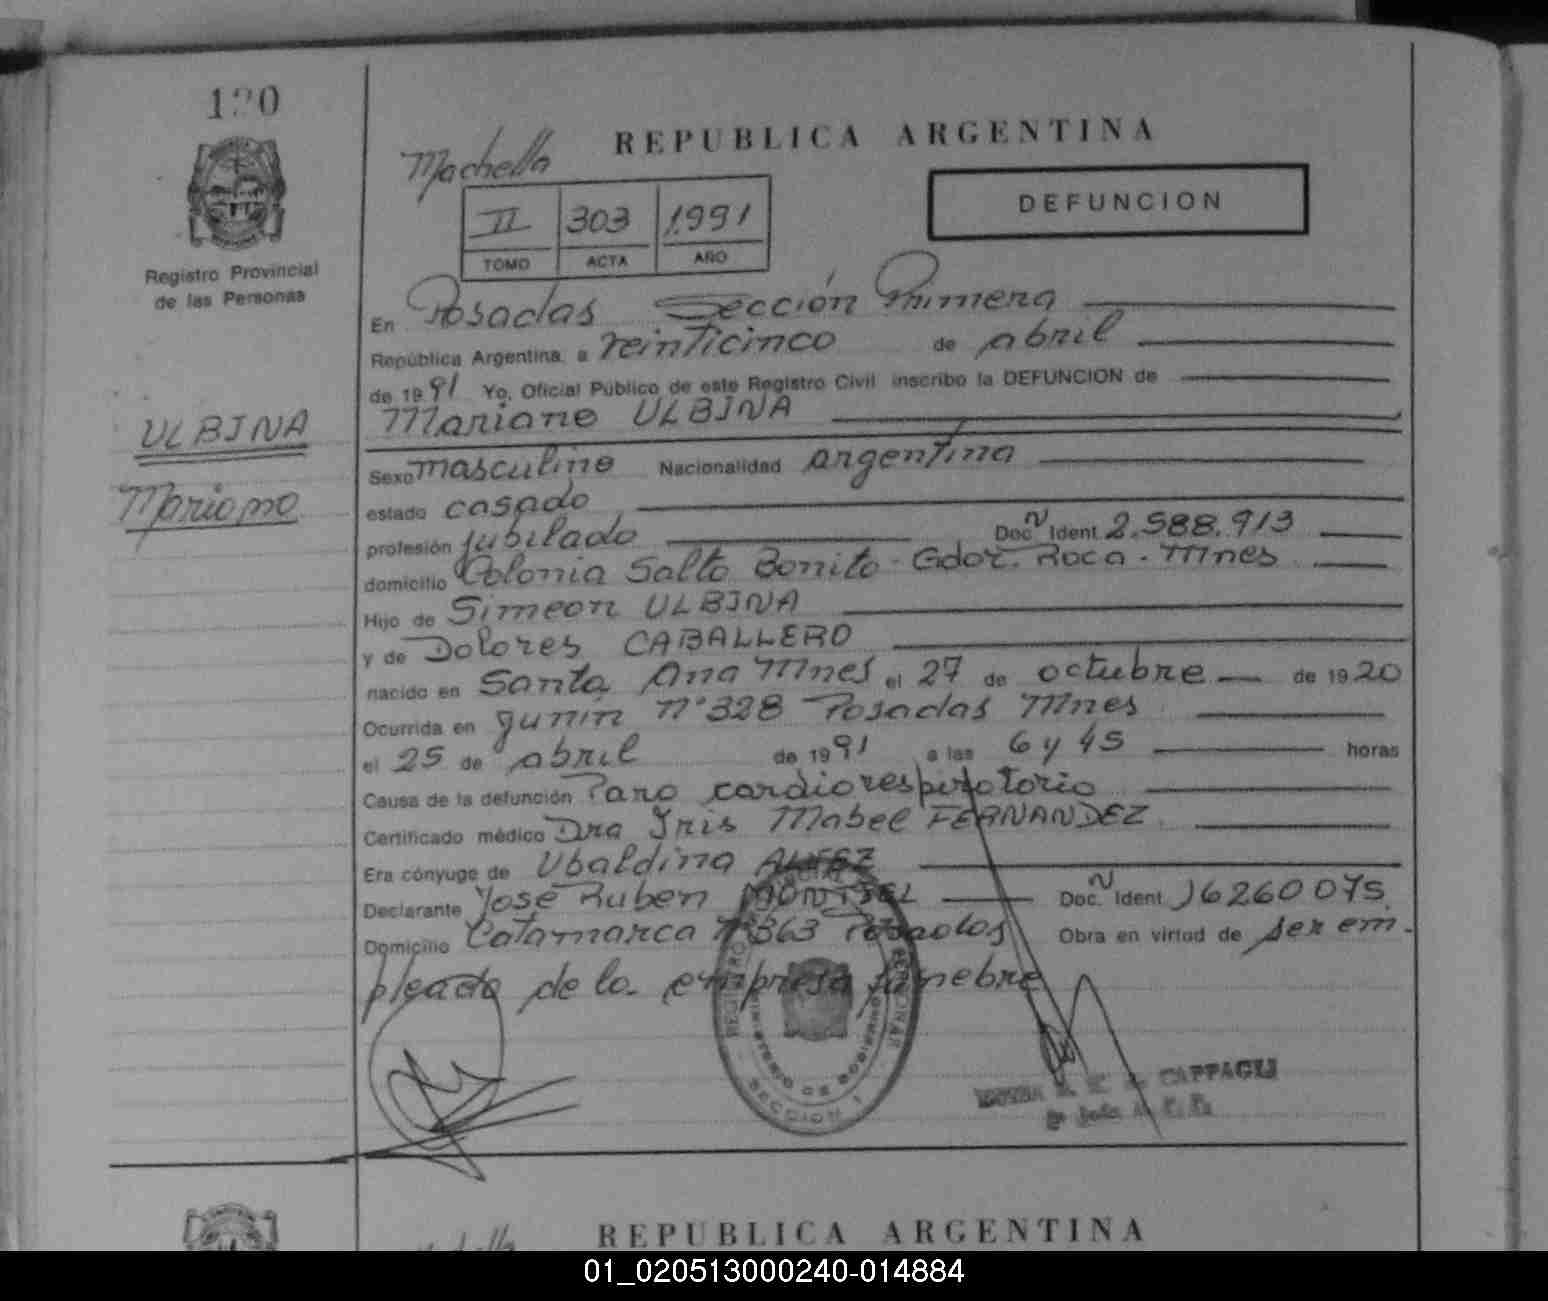 120
Registro Provincial
de las Personas
REPUBLICA ARGENTINA
Machella
II 303 1.991
TOMO ACTA AÑO
DEFUNCION
En Posadas Sección Primera
República Argentina, a veinticinco de abril
de 19 91 Yo, Oficial Público de este Registro Civil inscribo la DEFUNCION de
Mariano ULBINA
ULBINA
Mariano
Sexo masculino Nacionalidad argentina
estado casado
profesión jubilado Doc. N Ident. 2.588.913
domicilio Colonia Salto Bonito - Gdor. Roca - Mnes
Hijo de Simeon ULBINA
y de Dolores CABALLERO
nacido en Santa Ana Mnes el 27 de octubre de 19 20
Ocurrida en Junín Nº 328 Posadas Mnes
el 25 de abril de 19 91 a las 6 y 45 horas
Causa de la defunción Paro cardiorespiratorio
Certificado médico Dra Iris Mabel FERNANDEZ
Era cónyuge de Ubaldina
Declarante José Ruben Doc. N Ident. 16260075
Domicilio Catamarca Nº 363 Posadas Obra en virtud de ser em-
pleado de la empresa fúnebre
MINISTERIO DE GOBIERNO
SECCION 1
CAPPAGLI
REPUBLICA ARGENTINA
01_020513000240-014884